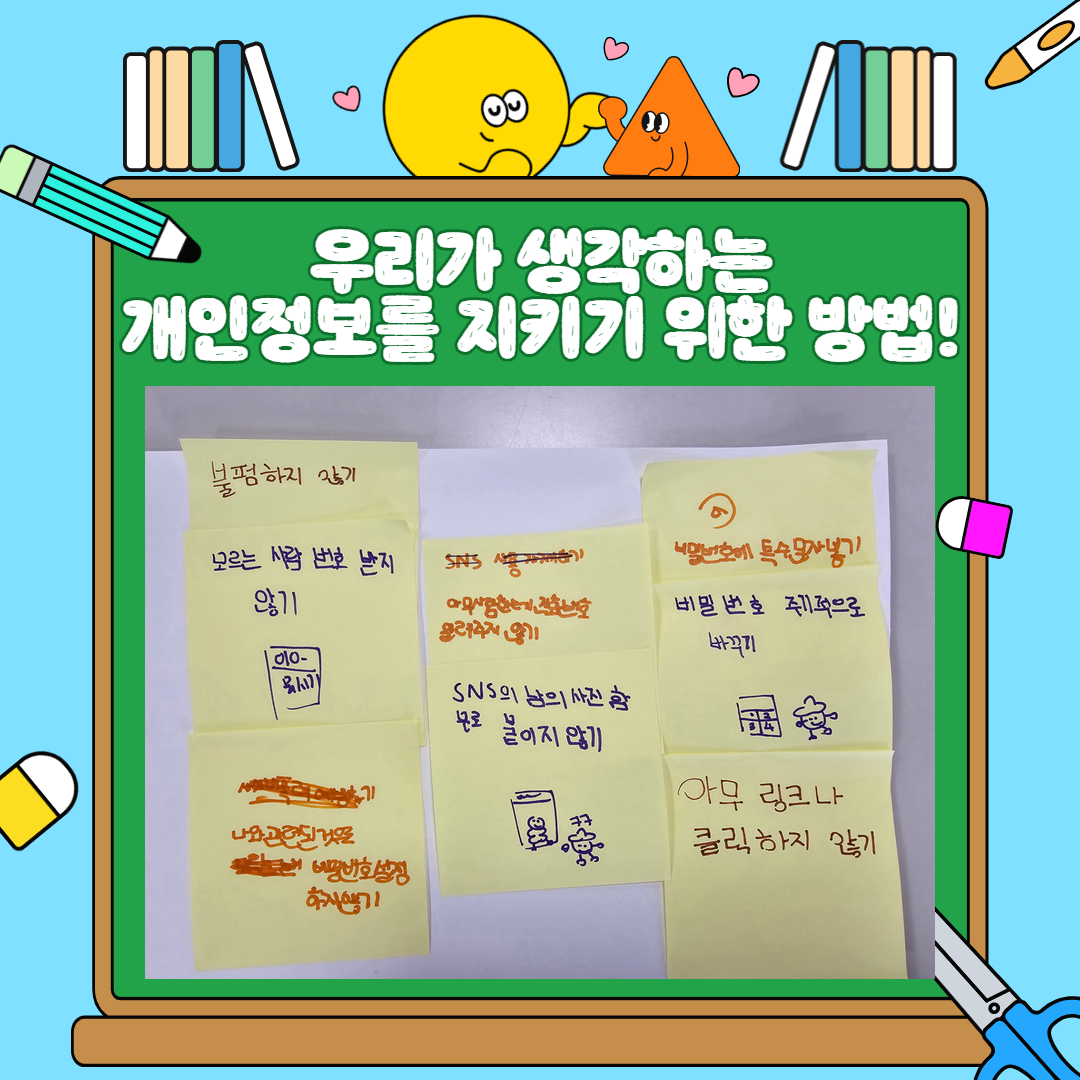 우리가 생각하는
개인정보를 지키기 위한 방법!
불펌하지 않기
모르는 사람 번호 받지
않기
010-
나와 관련된 것으로
비밀번호 설정
하지 않기
SNS
아무사람한테 전화번호
알려주지 않기
SNS의 남의 사진 함
부로 붙이지 않기
비밀번호에 특수문자 넣기
비밀번호 주기적으로
바꾸기
1 2
3 4
아무 링크나
클릭하지 않기